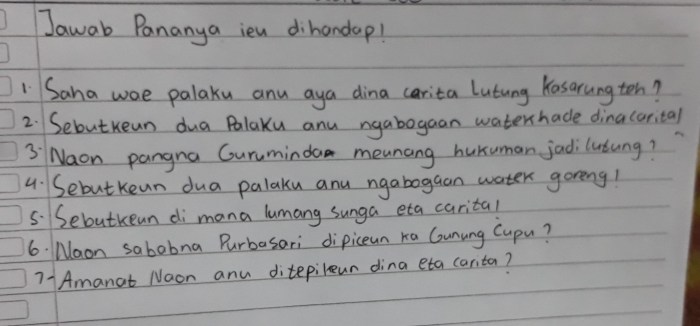 Jawab Pananya ieu dihandap!
1. Saha wae palaku anu aya dina carita Lutung Kasarung teh?
2. Sebutkeun dua Palaku anu ngabogaan watek hade dina carita!
3. Naon pangna Guruminda meunang hukuman jadi lutung?
4. Sebutkeun dua palaku anu ngabogaan watek goreng!
5. Sebutkeun di mana lumang sunga eta carita!
6. Naon sababna Purbasari dipiceun ka Gunung Cupu?
7. Amanat Naon anu ditepikeun dina eta carita?